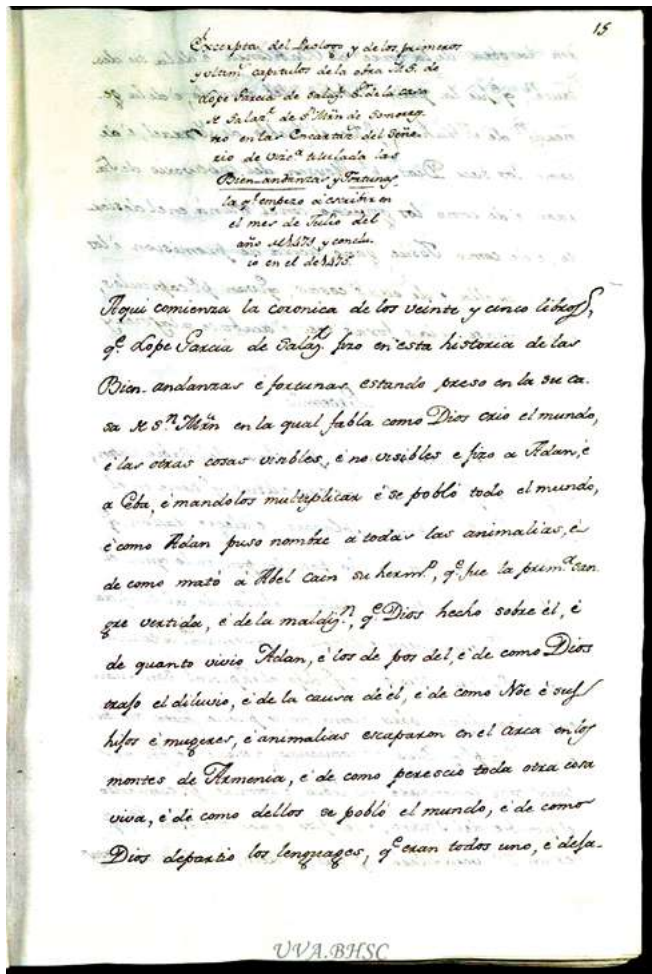 15
Excerpta del Prologo y de los primeros
y ultim.s capitulos de la obra M.S. de
Lope Garcia de Salaz.r S.r de la casa
de Salaz.r de S.n Mrn de Somorros
tro en las Encartaz.s del Señe
rio de Vizc.a titulada las
Bien-andanzas y Fortunas
la q.e empezo à escribir en
el mes de Julio del
año de 1471. y conclu
io en el de 1475.
Aqui comienza la coronica de los veinte y cinco libros,
q.e Lope Garcia de Salaz.r fizo en esta historia de las
Bien-andanzas è fortunas estando preso en la su ca-
sa de S.n Mrn en la qual fabla como Dios crio el mundo,
è las otras cosas visibles, è no visibles e fizo a Adan, è
a Eba, è mandolos multiplicar è se pobló todo el mundo,
è como Adan puso nombre a todas las animalias, è
de como mató a Abel cain su herm.o, q.e fue la prim.a san
gre vertida, è de la maldiz.n, q.e Dios hecho sobre èl, è
de quanto vivio Adan, è los de pos del, è de como Dios
traso el diluvio, è de la causa de èl, è de como Noe è sus
hijos è mugeres, è animalias escaparon en el arca en los
montes de Armenia, è de como perescio toda otra cosa
viva, è de como dellos se pobló el mundo, è de como
Dios departio los lenguages, q.e eran todos uno, è desa-
UVA.BHSC